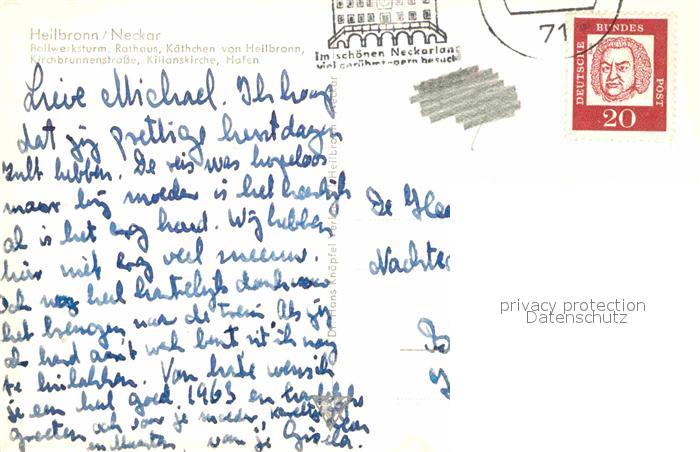 Heilbronn / Neckar
Bollwerksturm, Rathaus, Käthchen von Heilbronn,
Kirchbrunnenstraße, Kilianskirche, Hafen
Im schönen Neckarland
viel gerühmt-gern besucht
71
DEUTSCHE BUNDES POST
20
Lieve Michael. Ik hoop
dat jij prettige kerstdagen
zult hebben. De reis was hopeloos
maar bij moeder is het heerlijk
al is het erg koud. Wij hebben
hier niet erg veel sneeuw.
Ook nog heel hartelijk dank voor
het brengen naar de trein. Als jij
als hard aan't werk bent zit ik nog
te
Van harte wensch
je een heel goed 1963 en hartelijke
groeten ook voor je moeder, Karel
en Maarten, van je Gisela.
De
Nachte
Dr. Hans Knöpfel Verlag Heilbronn Neckar
privacy protection
Datenschutz